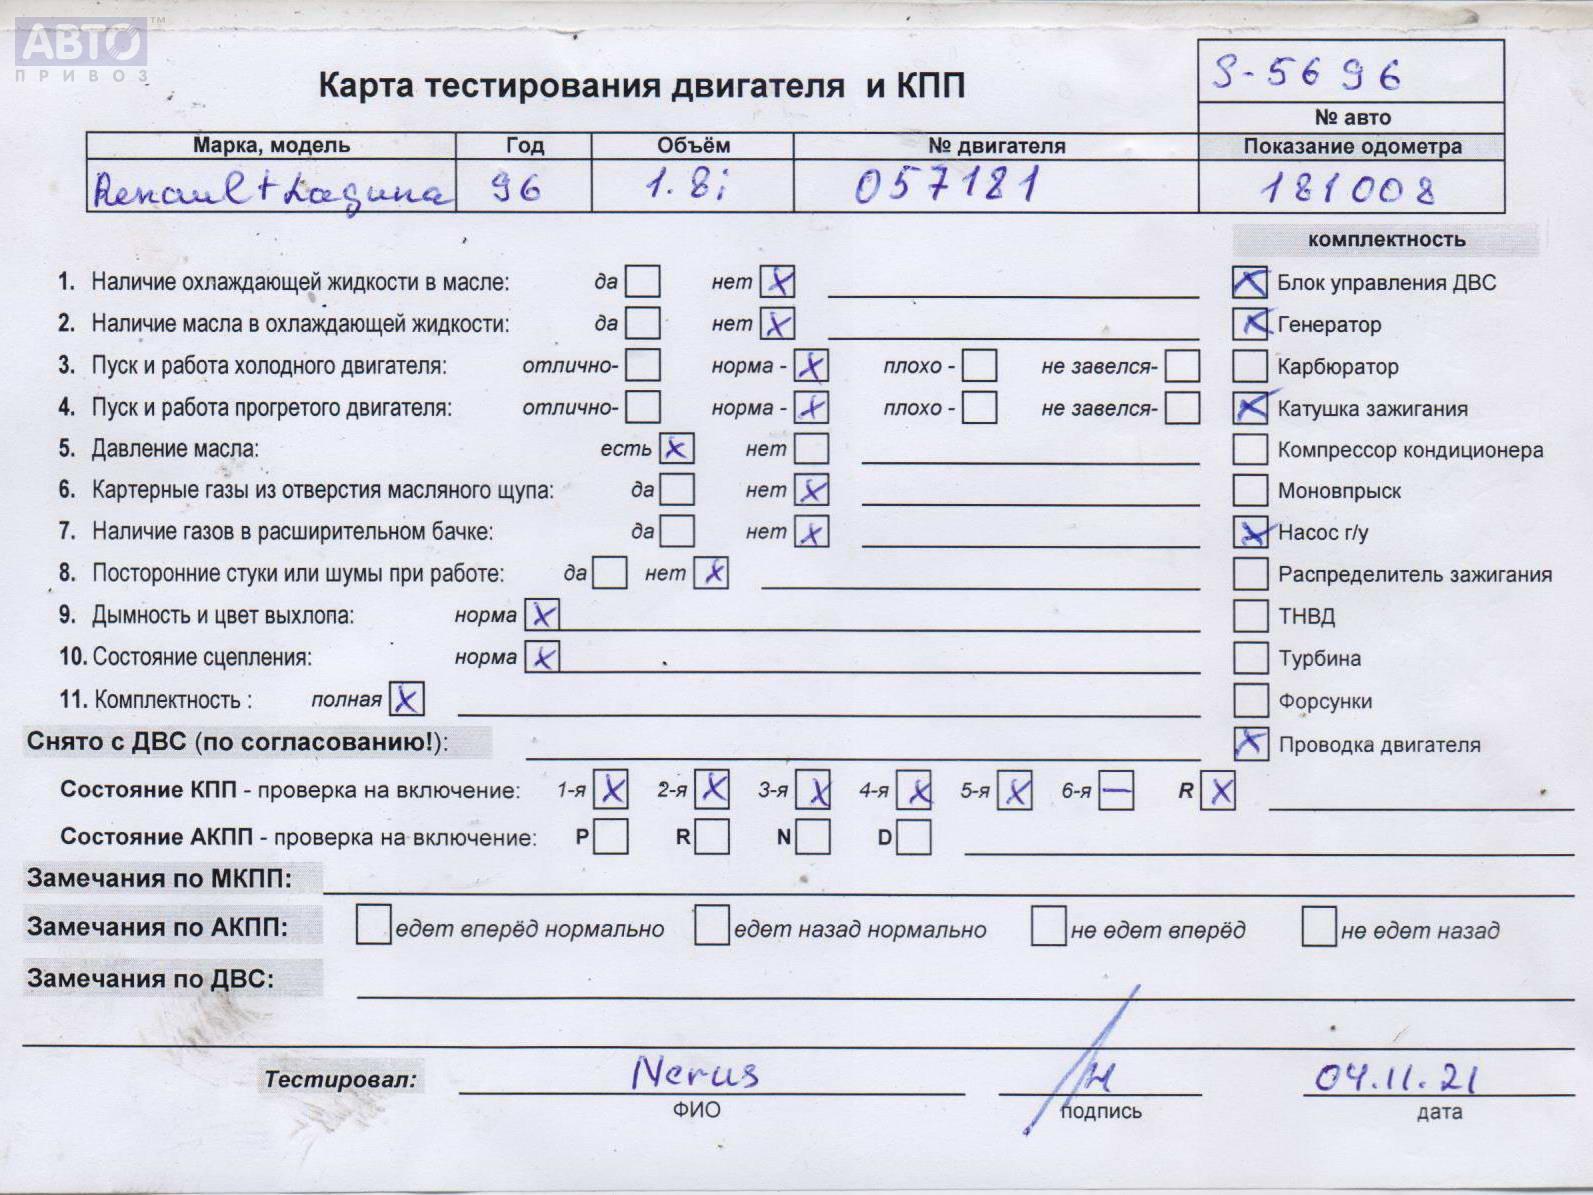 АВТО™
ПРИВОЗ
Карта тестирования двигателя и КПП
S-5696
№ авто
Марка, модель Год Объём № двигателя Показание одометра
Renault Laguna 96 1.8i 057181 181008
комплектность
1. Наличие охлаждающей жидкости в масле: да нет X
X Блок управления ДВС
2. Наличие масла в охлаждающей жидкости: да нет X
X Генератор
3. Пуск и работа холодного двигателя: отлично- норма - X плохо - не завелся-
Карбюратор
4. Пуск и работа прогретого двигателя: отлично- норма - X плохо - не завелся-
X Катушка зажигания
5. Давление масла: есть X нет
Компрессор кондиционера
6. Картерные газы из отверстия масляного щупа: да нет X
Моновпрыск
7. Наличие газов в расширительном бачке: да нет X
X Насос г/у
8. Посторонние стуки или шумы при работе: да нет X
Распределитель зажигания
9. Дымность и цвет выхлопа: норма X
ТНВД
10. Состояние сцепления: норма X
Турбина
11. Комплектность : полная X
Форсунки
Снято с ДВС (по согласованию!):
X Проводка двигателя
Состояние КПП - проверка на включение: 1-я X 2-я X 3-я X 4-я X 5-я X 6-я — R X
Состояние АКПП - проверка на включение: P R N D
Замечания по МКПП:
Замечания по АКПП: едет вперёд нормально едет назад нормально не едет вперёд не едет назад
Замечания по ДВС:
Тестировал: Nerus 04.11.21
ФИО подпись дата